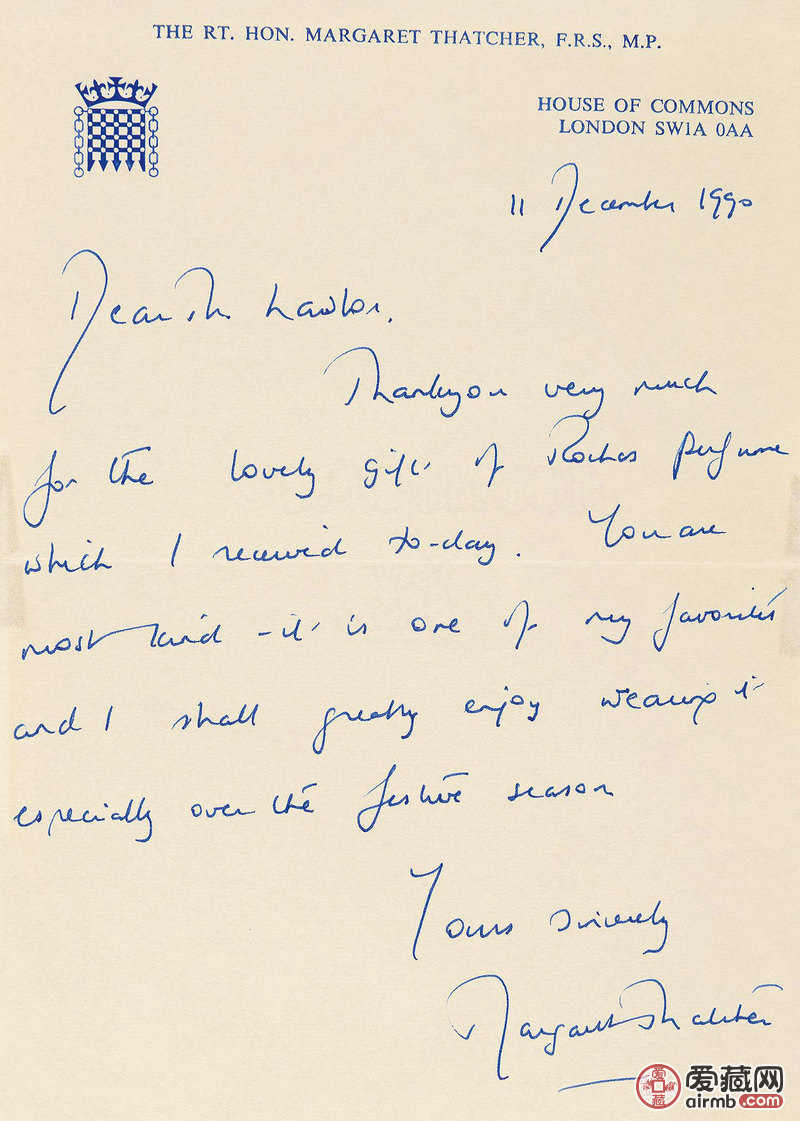 THE RT. HON. MARGARET THATCHER, F.R.S., M.P.
HOUSE OF COMMONS
LONDON SW1A 0AA
11 December 1990
Dear Mr. Lawlor,
Thankyou very much
for the lovely gift of Rochas perfume
which I received to-day. You are
most kind - it is one of my favorites
and I shall greatly enjoy wearing it
especially over the festive season
Yours sincerely
Margaret Thatcher
爱藏网
airmb.com